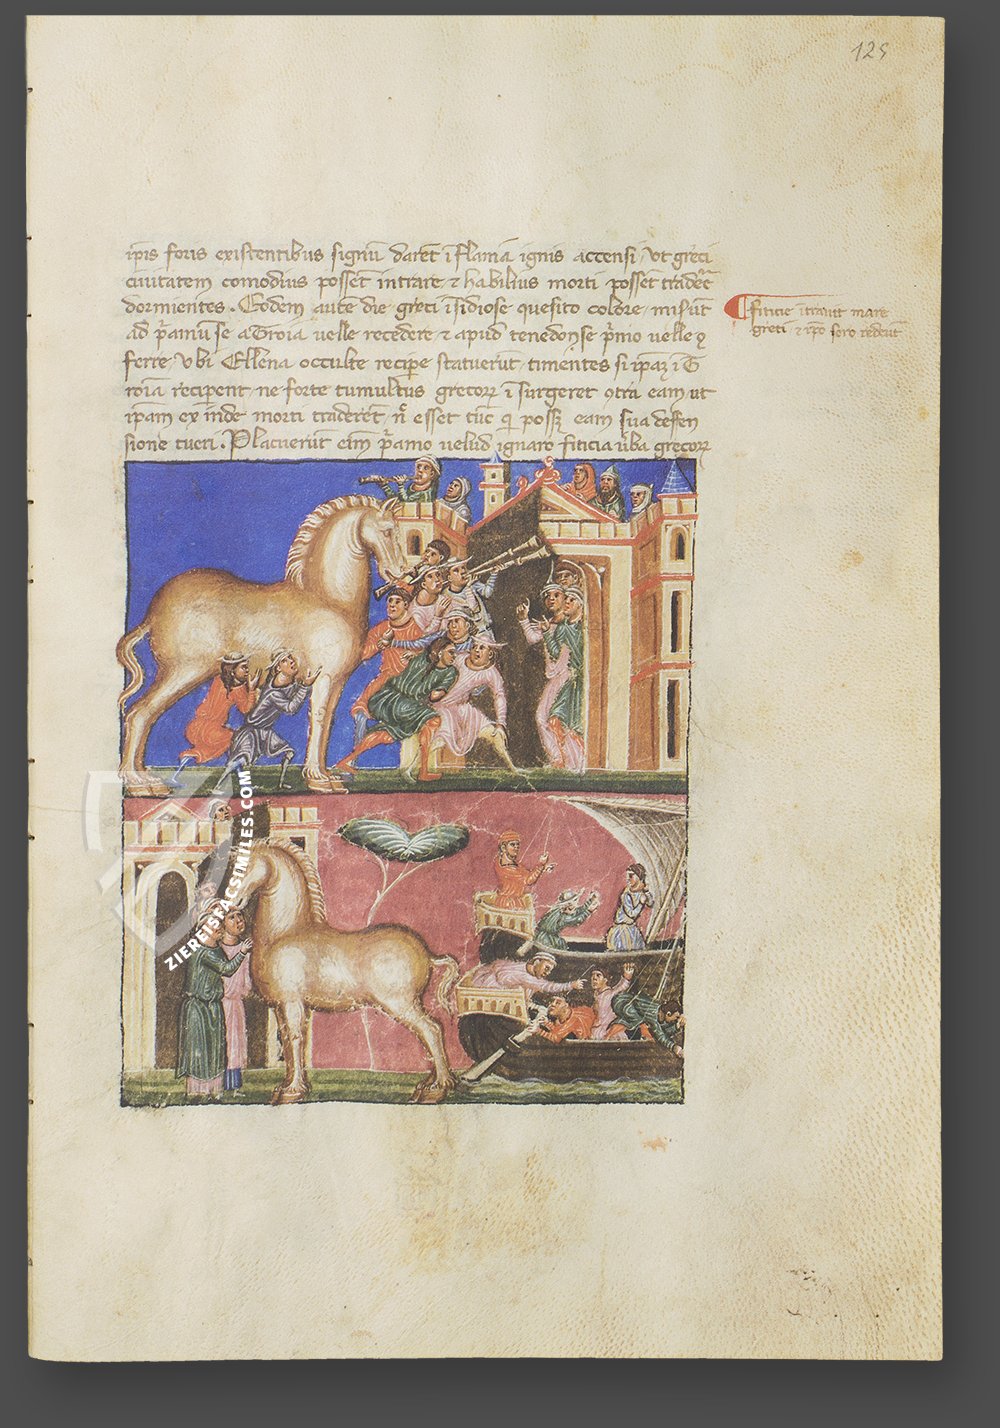 125
ip̄is foris existentibus signū daret ī flamā ignis accensi, ut greci
civitatem comodius possēt intrare, & habilius morti possēt tradeē
dormientes. Eodem autē die greci īsidiose quesito colore, misūt
ad p̄amū se a Troia velle recedere, & apud tenedon se p̄mo velle
ferre, ubi Ellena occulte recipe statuerūt timentes si ipaꝫ ī T
roia reciperent, ne forte tumultus grecoꝝ īsurgeret ꝯtra eam, ut
ipam ex inde morti traderēt, nē esset tūc qi possꝫ eam sua deffen
sione tueri. Placuerūt eīm p̄amo velud ignaro fiticia v̄ba grecoꝝ
fiticie ītravūt mare
greci & ip̄o sero redeūt
ZIEREISFACSIMILES.COM